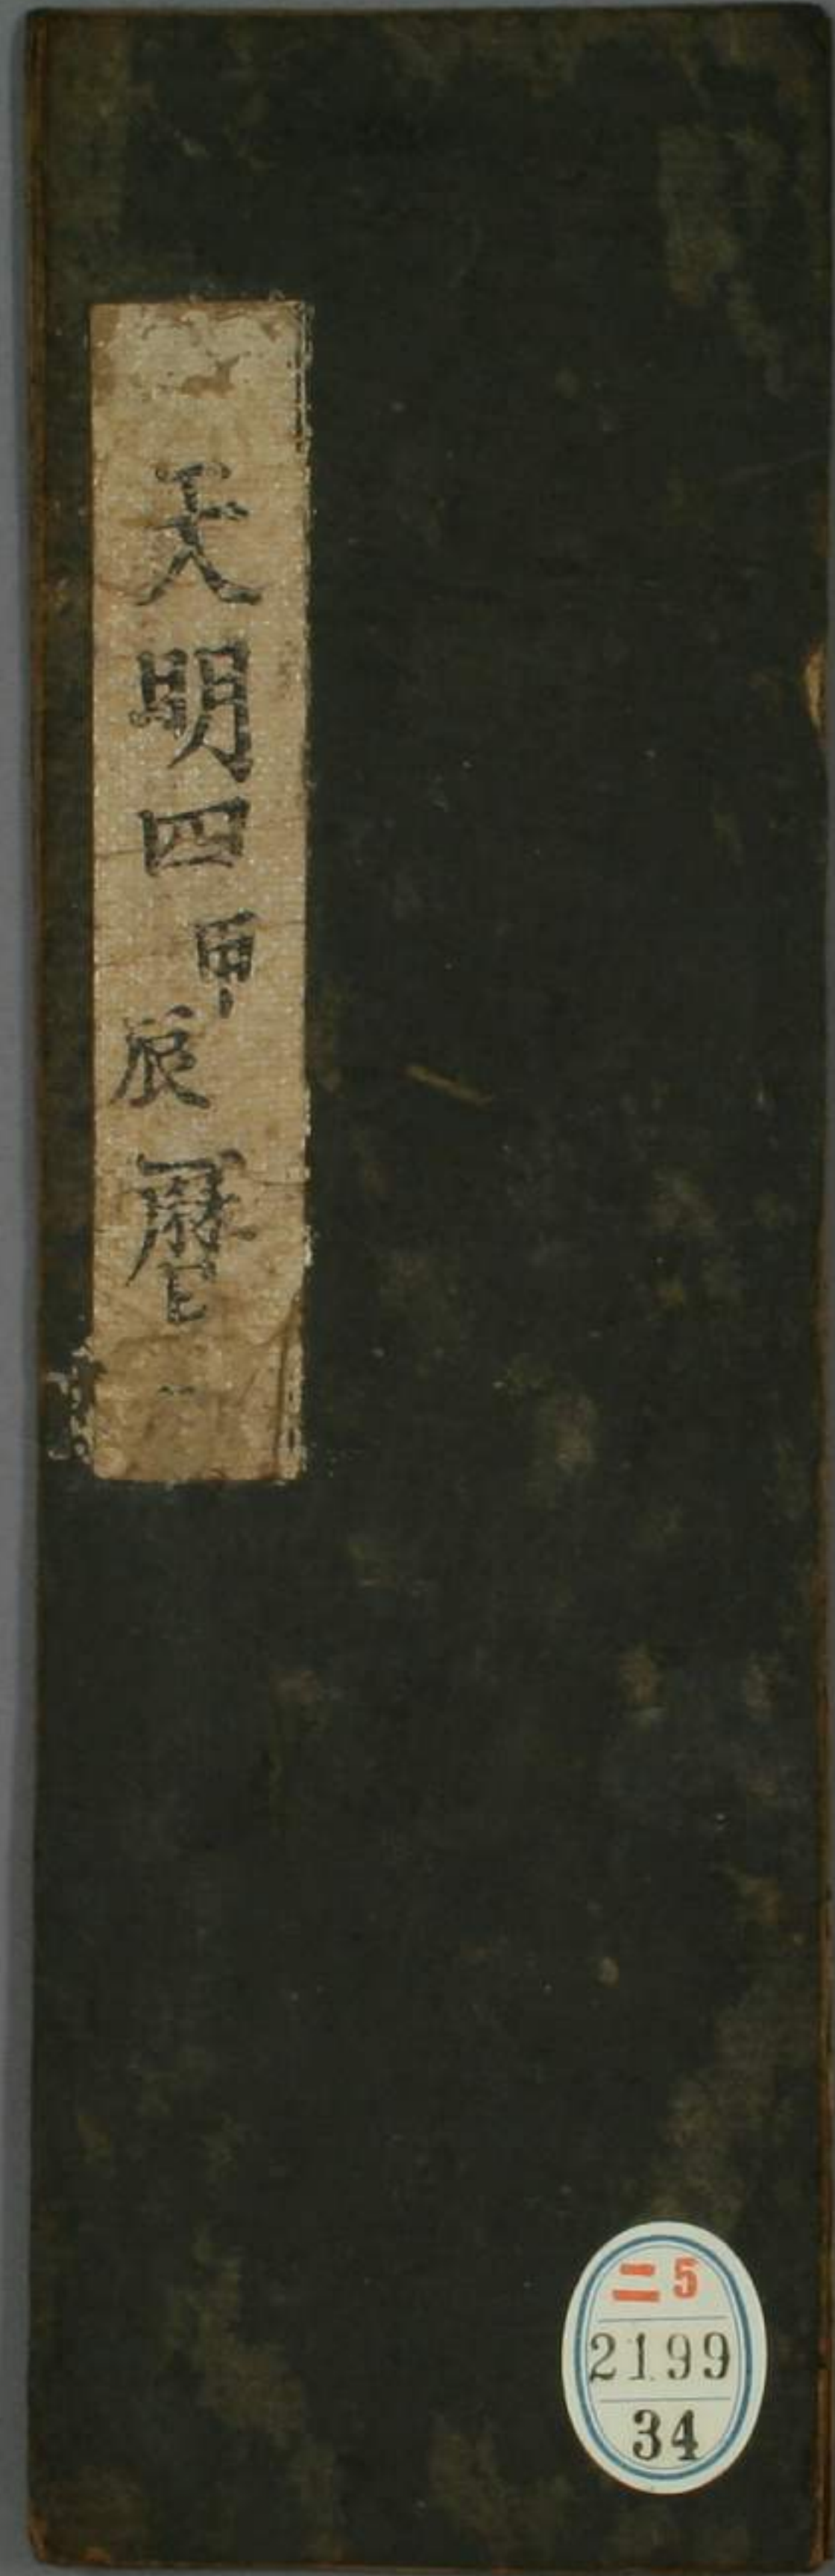 天明四甲辰暦
二5
2199
34